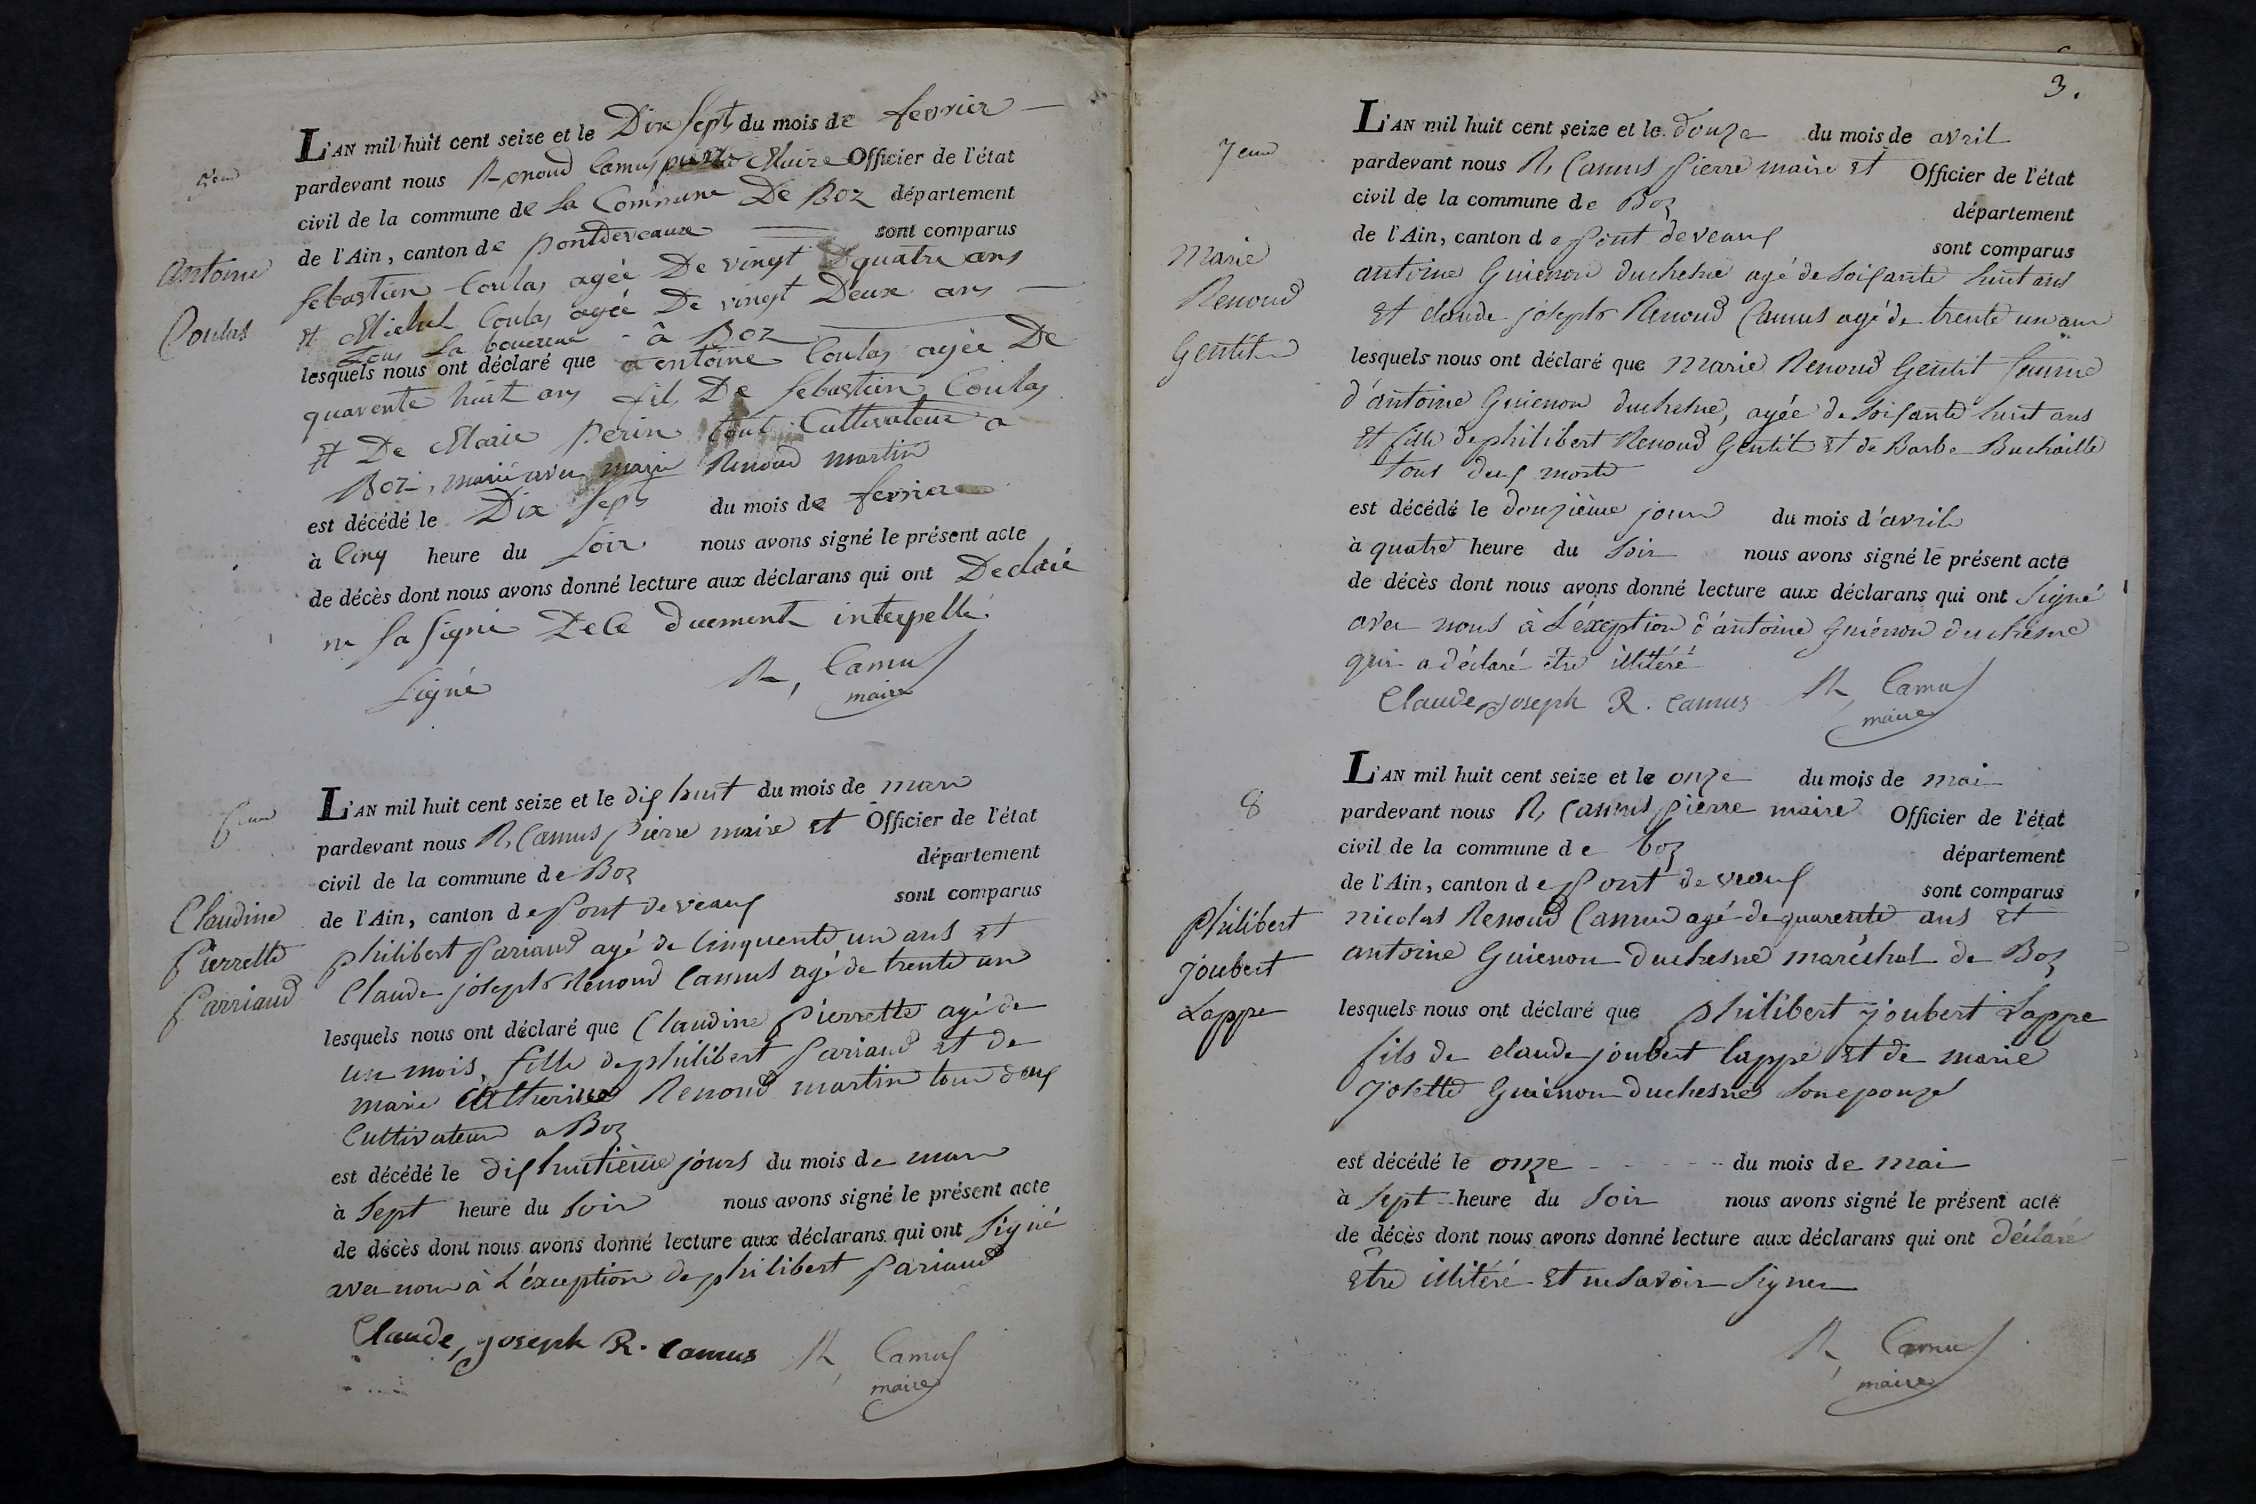 5eme
Antoine
Coulas
L'AN mil huit cent seize et le Dix sept du mois de fevrier
pardevant nous Renoud Camus pierre Maire Officier de l'état
civil de la commune de La Commune De Boz département
de l'Ain, canton de pontdeveaux sont comparus
Sebastien Coulas agée De vingt quatre ans
et Michel Coulas agée De vingt Deux ans
Tous à Boz
lesquels nous ont déclaré que antoine Coulas agée De
quarente huit ans fils De Sebastien Coulas
et De Marie perin tout Cultivateur a
Boz, marié avec marie Renoud martin
est décédé le Dix Sept du mois de fevrier
à Cinq heure du Soir nous avons signé le présent acte
de décès dont nous avons donné lecture aux déclarans qui ont Declaré
ne sa signé De ce duement interpellé
Signé R, Camus
maire
6eme
Claudine
Pierrette
Parriaud
L'AN mil huit cent seize et le dix huit du mois de mars
pardevant nous R, Camus Pierre maire et Officier de l'état
civil de la commune de Boz département
de l'Ain, canton de Pont de veaux sont comparus
philibert Pariaud agé de Cinquente un ans et
Claude joseph Renoud Camus agé de trente un
lesquels nous ont déclaré que Claudine Pierrette agé de
un mois, fille de philibert Pariaud et de
marie Catherine Renoud martin tous deux
Cultivateur a Boz
est décédé le dix huitième jours du mois de mars
à Sept heure du Soir nous avons signé le présent acte
de décès dont nous avons donné lecture aux déclarans qui ont Signé
avec nous à L'éxception de philibert Pariaud
Claude, joseph R. Camus R, Camus
maire
3.
7eme
Marie
Renoud
Gentit
L'AN mil huit cent seize et le douze du mois de avril
pardevant nous R, Camus Pierre maire et Officier de l'état
civil de la commune de Boz département
de l'Ain, canton de Pont de veaux sont comparus
antoine Guienon duchesne agé de soisante huit ans
et claude joseph Renoud Camus agé de trente un ans
lesquels nous ont déclaré que Marie Renoud Gentit femme
d'antoine Guienon duchesne, agée de soisante huit ans
et fille de philibert Renoud Gentit et de Barbe Buchaille
tous deux morts
est décédé le douzième jour du mois d'avril
à quatre heure du Soir nous avons signé le présent acte
de décès dont nous avons donné lecture aux déclarans qui ont Signé
avec nous à L'éxception d'antoine Guiénon duchesne
qui a déclaré être illitéré
Claude joseph R. Camus R, Camus
maire
8
Philibert
Joubert
Lappe
L'AN mil huit cent seize et le onze du mois de mai
pardevant nous R, Camus pierre maire Officier de l'état
civil de la commune de boz département
de l'Ain, canton de Pont de veaux sont comparus
nicolas Renoud Camus agé de quarente ans et
antoine Guienon duchesne maréchal de Boz
lesquels nous ont déclaré que philibert joubert Lappe
fils de claude joubert lappe et de marie
josette Guiénon duchesne son eponze
est décédé le onze du mois de mai
à Sept heure du Soir nous avons signé le présent acte
de décès dont nous avons donné lecture aux déclarans qui ont déclaré
être illitéré et ne savoir signer
R, Camus
maire